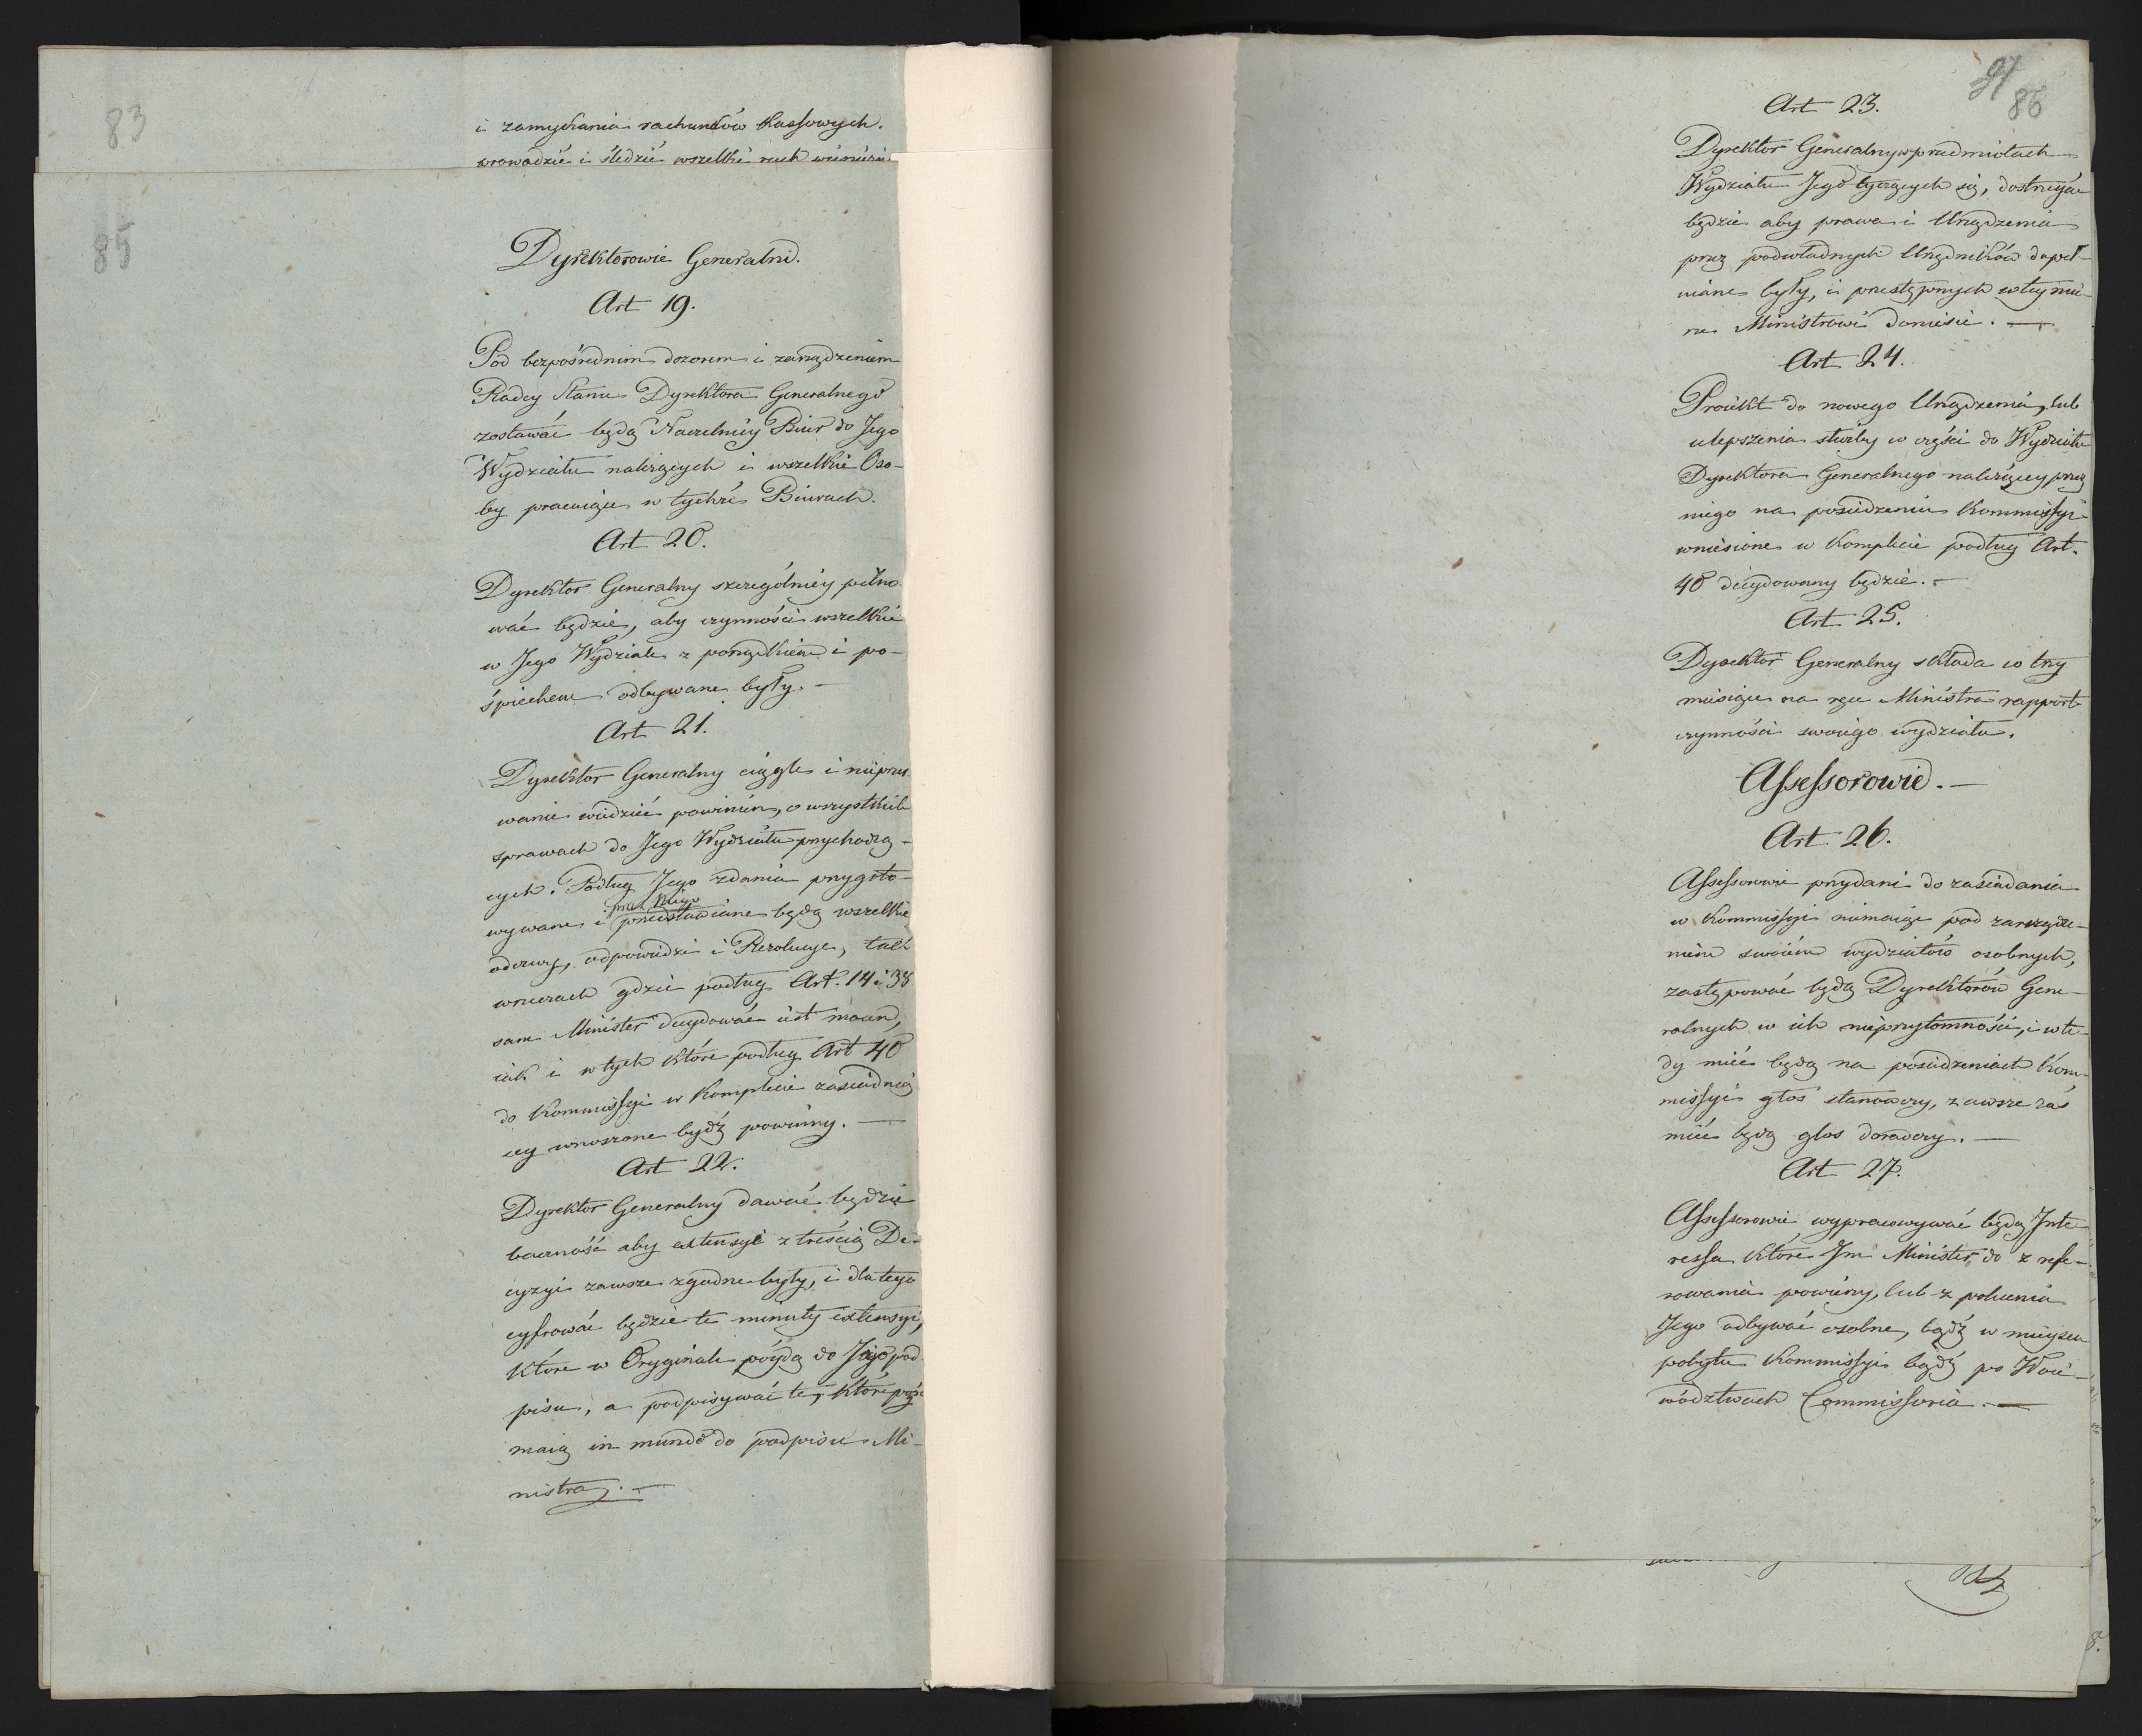 83
i zamykania rachunków Kassowych.
prowadzić i śledzić wszelki ruch
85
Dyrektorowie Generalni.
Art 19.
Pod bezpośrednim dozorem i zarządzeniem
Radcy Stanu Dyrektora Generalnego
zostawać będą Naczelnicy Biur do Jego
Wydziału należących i wszelkie Oso-
by pracuiące w tychże Biurach.
Art 20.
Dyrektor Generalny szczególniey pilno-
wać będzie, aby czynności wszelkie
w Jego Wydziale z porządkiem i po-
śpiechem odbywane były. —
Art 21.
Dyrektor Generalny ciągle i nieprzer-
wanie wiedzieć powinien, o wszystkich
sprawach do Jego Wydziału przychodzą-
cych. Podług Jego zdania przygoto-
przez Niego
wywane i przedstawiane będą wszelkie
odezwy, odpowiedzi i Rezolucye, tak
wrzeczach gdzie podług Art. 14 i 38
sam Minister decydować iest mocen,
iak i wtych które podług Art 40
do Kommissyi w Komplecie zasiadaią
cey wnoszone bydź powinny. —
Art 22.
Dyrektor Generalny dawać będzie
baczność aby extensye z treścią De-
cyzyi zawsze zgodne były, i dla tego
cyfrować będzie te minuty extensyi,
które w Oryginale póydą do Jego pod-
pisu, a podpisywać te, które póyść
maią in mundo do podpisu Mi-
nistra. —
91
86
Art 23.
Dyrektor Generalny w przedmiotach
Wydziału Jego tyczących się, dostrzegać
będzie aby prawa i Urządzenia
przez podwładnych Urzędników dopeł-
niane były, i przestępnych w tey mie-
rze Ministrowi doniesie. —
Art 24.
Proiekt do nowego Urządzenia, lub
ulepszenia służby w części do Wydziału
Dyrektora Generalnego należącey, przez
niego na posiedzeniu Kommissyi
wniesione w Komplecie podług Art.
40 decydowany będzie. —
Art 25.
Dyrektor Generalny składa co trzy
miesiące na ręce Ministra rapport
czynności swoiego wydziału.
Assessorowie. —
Art 26.
Assessorowie przydani do zasiadania
w Kommissyi niemaiąc pod zarządze-
niem swoiem wydziałów osobnych,
zastępować będą Dyrektorów Gene-
ralnych w ich nieprzytomności, i wte-
dy mieć będą na posiedzeniach Kom-
missyi głos stanowczy, zawsze zaś
mieć będą głos doradczy. —
Art 27.
Assessorowie wypracowywać będą Inte-
ressa które Im Minister do z refe-
rowania powierzy, lub z polecenia
Jego odbywać osobne, bądź w mieyscu
pobytu Kommissyi bądź po Woie-
wództwach Commissoria. —